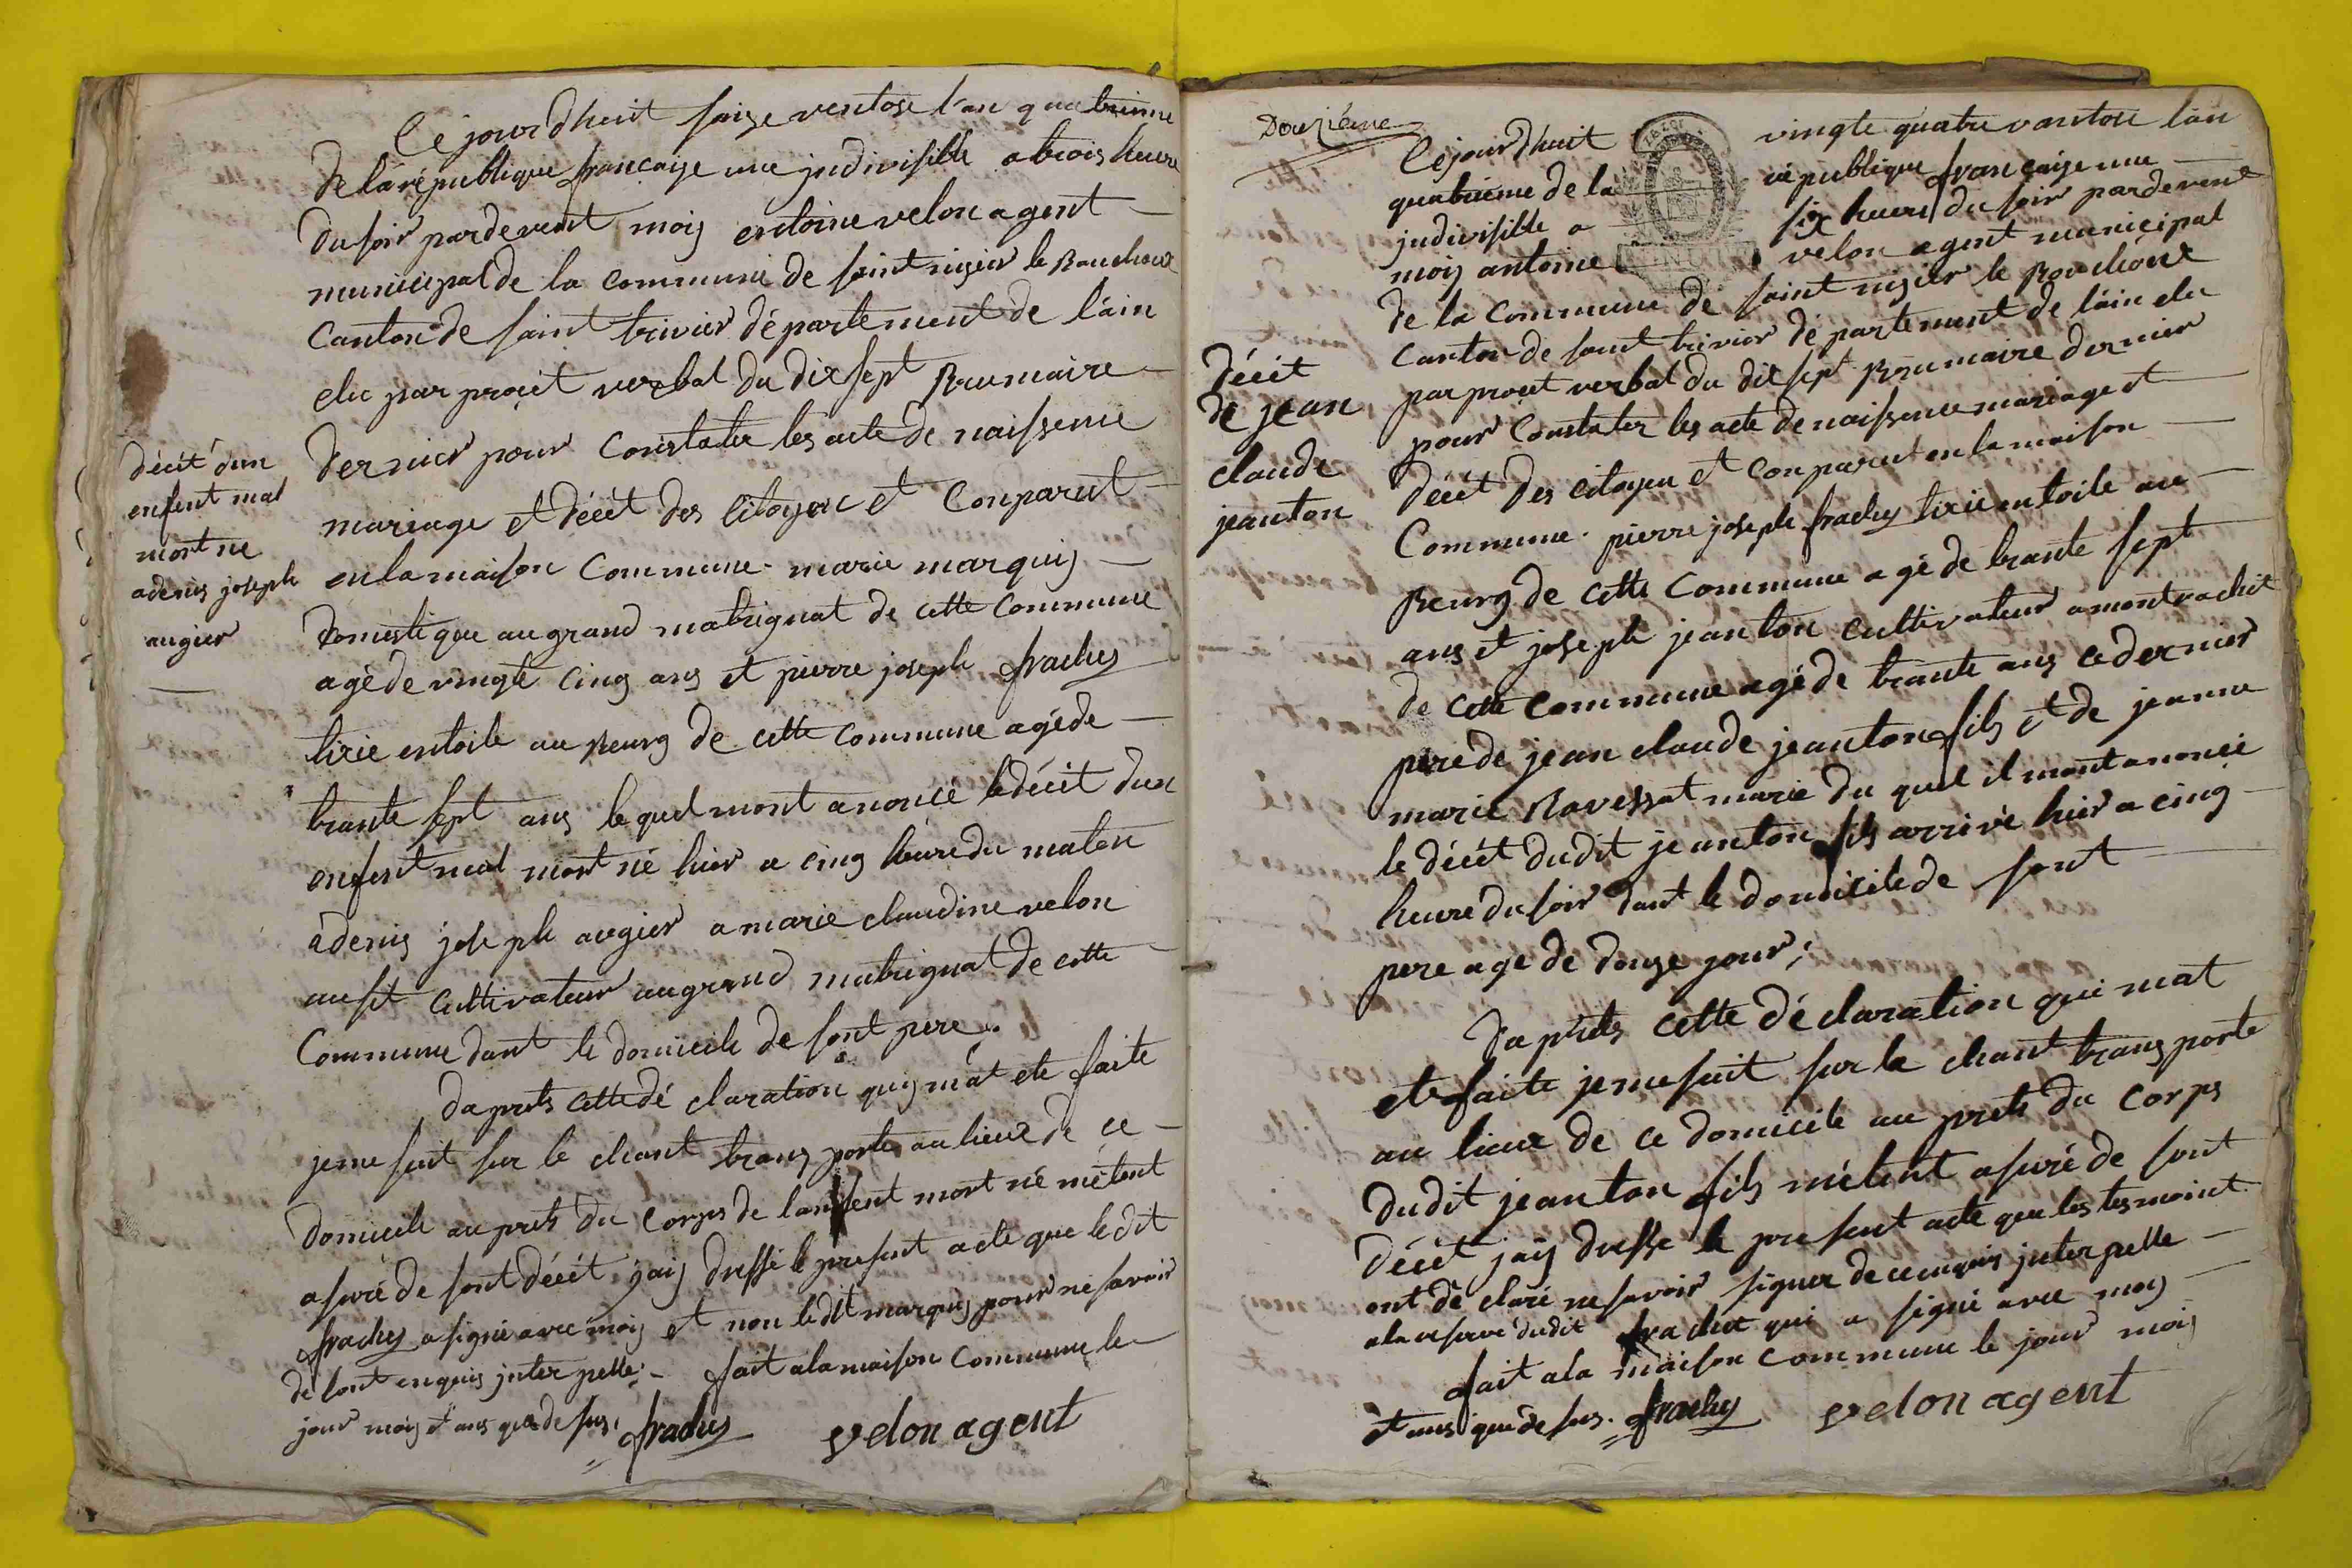 Ce jourdhuit saize ventose l'an quatrieme
de la république francaise une jndivisible a trois heure
du soir pardevent moij entoine velon agent
municipal de la commune de saint nizier le Bouchoux
canton de saint trivier département de l'ain
elu par proçet verbal du dix sept Brumaire
dernier pour constater les acte de naissence
mariage et décét des citoyen et conparut
en la maison commune marie marquis
domestique au grand matrignat de cette commune
agé de vingte cinq ans et pierre joseph frachus
tixie entoile au Bourg de cette commune agé de
trante sept ans le quel mont anoncé le décét dun
décét d'un
enfent mal
mort né
a denis joseph
augier
enfent mal mort né hier a cinq heure du maten
a denis joseph augier a marie claudine velon
ausit cultivateur au grand matrignat de cette
commune dant le domicile de sont pere
daprets cette déclaration quij m'at ete faite
je me suit sur le chant transporte au lieux de ce
domicile au prets du corps de lanfent mort né metent
asuré de sont décét jaij dressé le present acte que le dit
frachus a signé avec moij et non ledit marquis pour ne savoir
de sont enquis jnterpelle fait a la maison commune le
jour mois et ans que de sus. frachus velon agent
Douzième
Ce jourdhuit vingte quatre vantose l'an
quatrieme de la république francaise une
jndivisible a six heure du soir pardevent
moij antoine velon agent municipal
de la commune de saint nizier le Bouchoux
canton de saint trivier département de l'ain elu
par proçet verbal du dit sept Brumaire dernier
pour constater les acte de naissence mariage et
décét des citoyen et conparut en la maison
décét
de jean
claude
jeanton
commune pierre joseph frachus tixie entoile au
Bourg de cette commune agé de trante sept
ans et joseph jeanton cultivateur a montrachit
de cette commune agé de trante ans ce dernier
pere de jean claude jeanton fils et de jeanne
marie Ravessat marie du quel il mont anoncé
le décét dudit jeanton fils arrivé hier a cinq
heure du soir dant le domicile de sont
pere age de douze jour;
daprets cette déclaration qui mat
ete faite je me suit sur le chant transporte
au lieux de ce domicile au prets du corps
dudit jeanton fils métent asuré de sont
décét jaij dresse le present acte que les tesmoint
ont déclaré ne savoir signer de ce enquis jnterpelle
a la reserve dudit frachus qui a signé avec moij
fait a la maison commune le jour mois
et ans que de sus. frachus velon agent